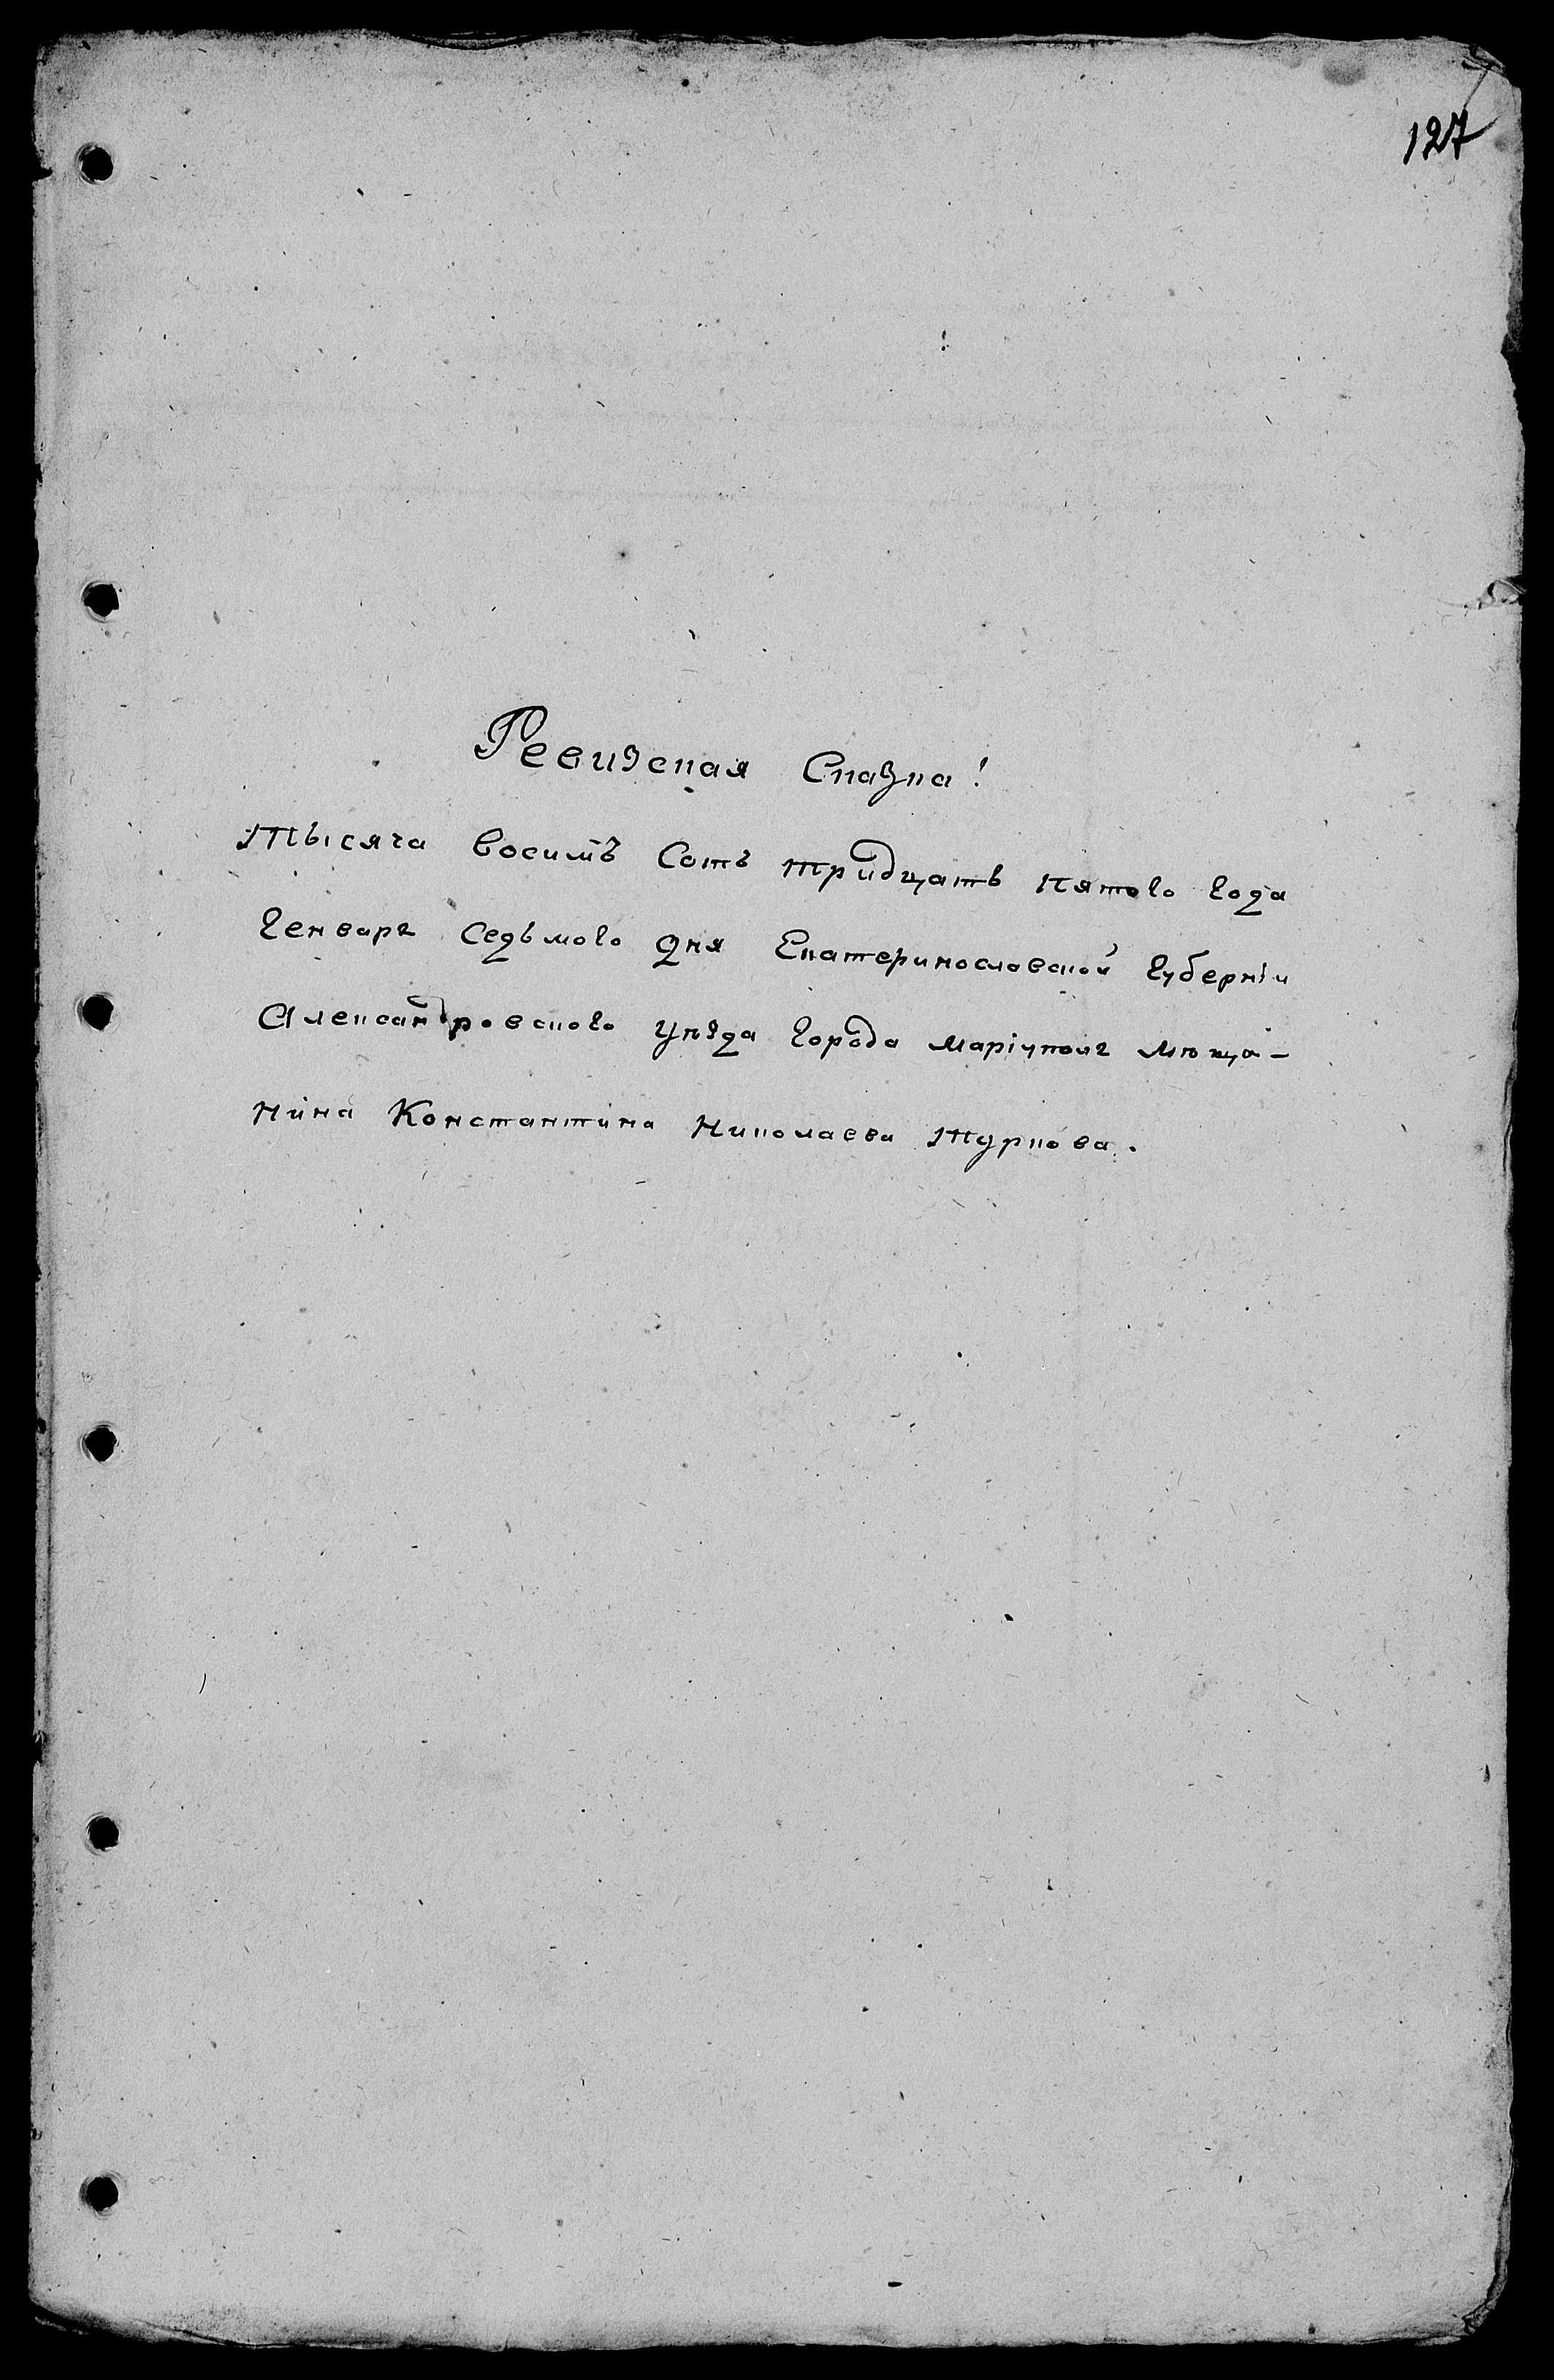 127
Ревизская Сказка!
Тысяча Восимъ Сотъ тридцать пятого года
Генваря Седьмого дня Екатеринославской Губерніи
Александровского уѣзда города Маріуполя мѣща-
нина Константина Николаева Туркова.